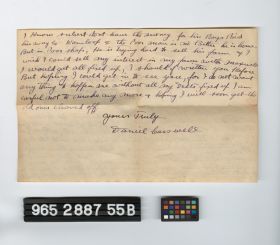 I Know Hubert dont have the money for his Boys Paid
his way to Kamloops & the Poor man is no Better he is home
But in Poor shape, He is trying hard to sell his farm & I
wish I could sell my interest in my farm with
I would get all fixed up, I should written you Before
But hoping I could get in to see you, for I do not want
any thing to happen me without all my Debts fixed up I am
careful not to make any more & hoping I will soon get the
ones cleared off
Yours Truly
Daniel
965 2887 55B